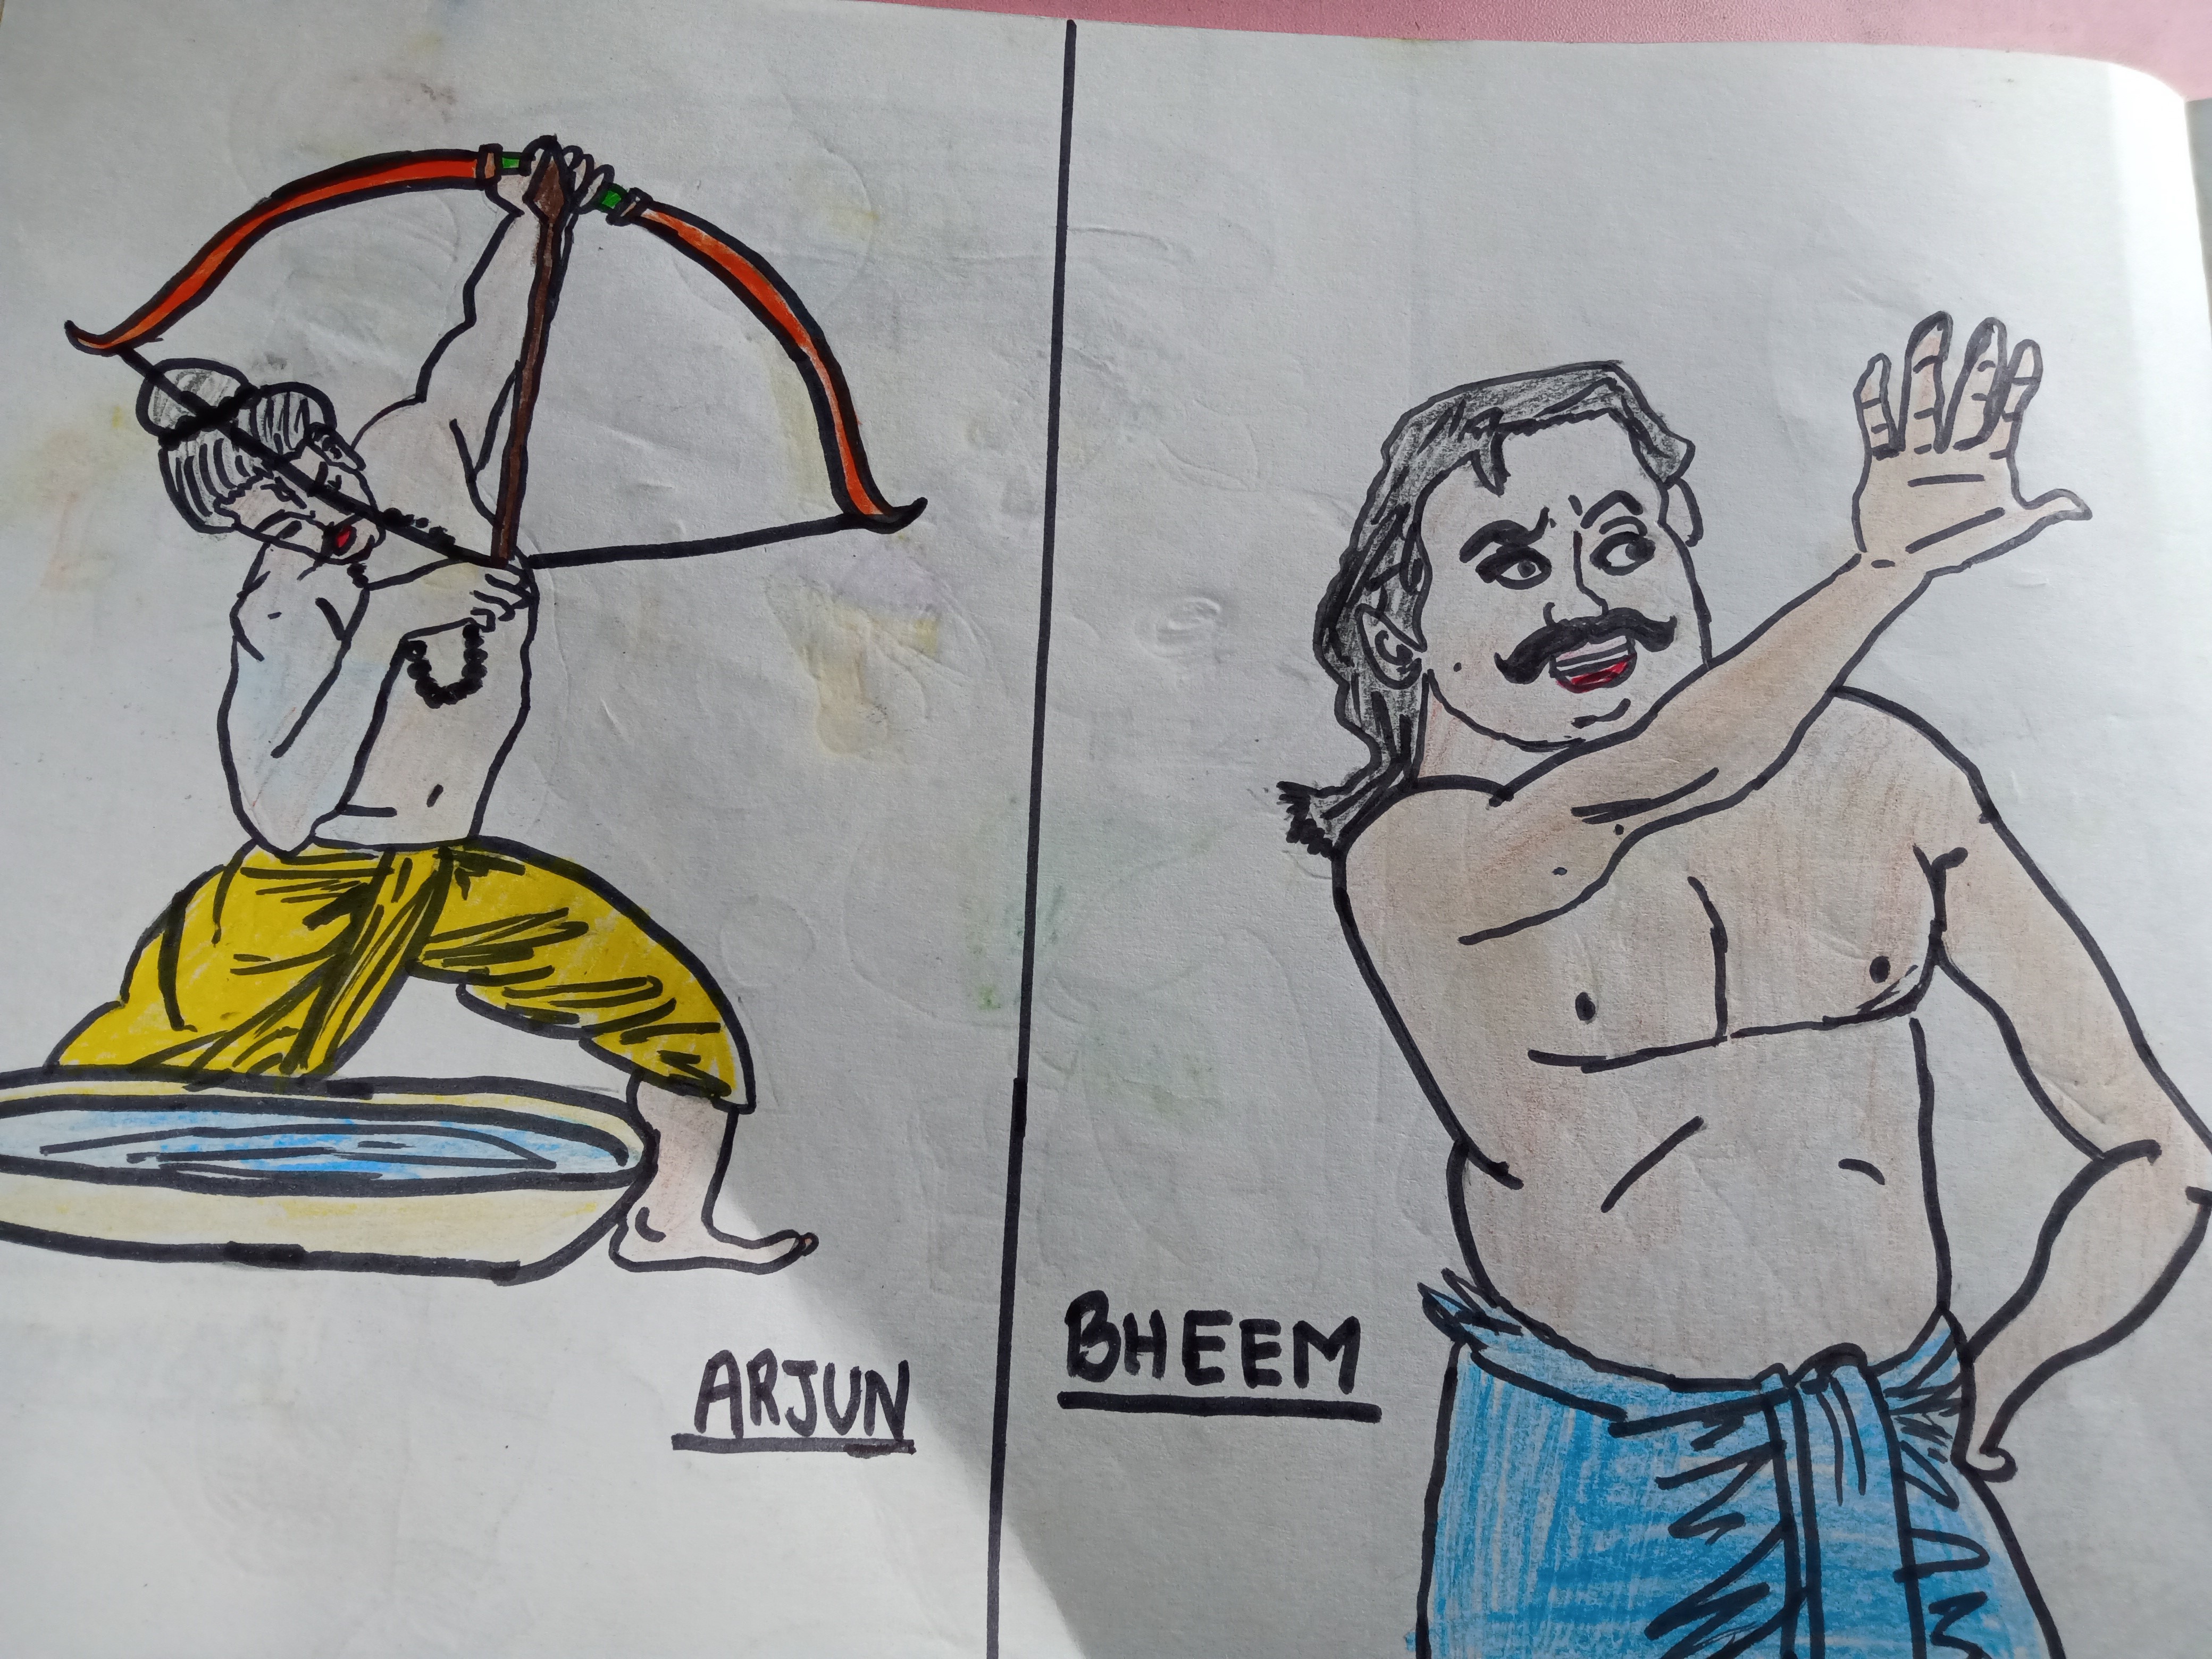 ARJUN
BHEEM